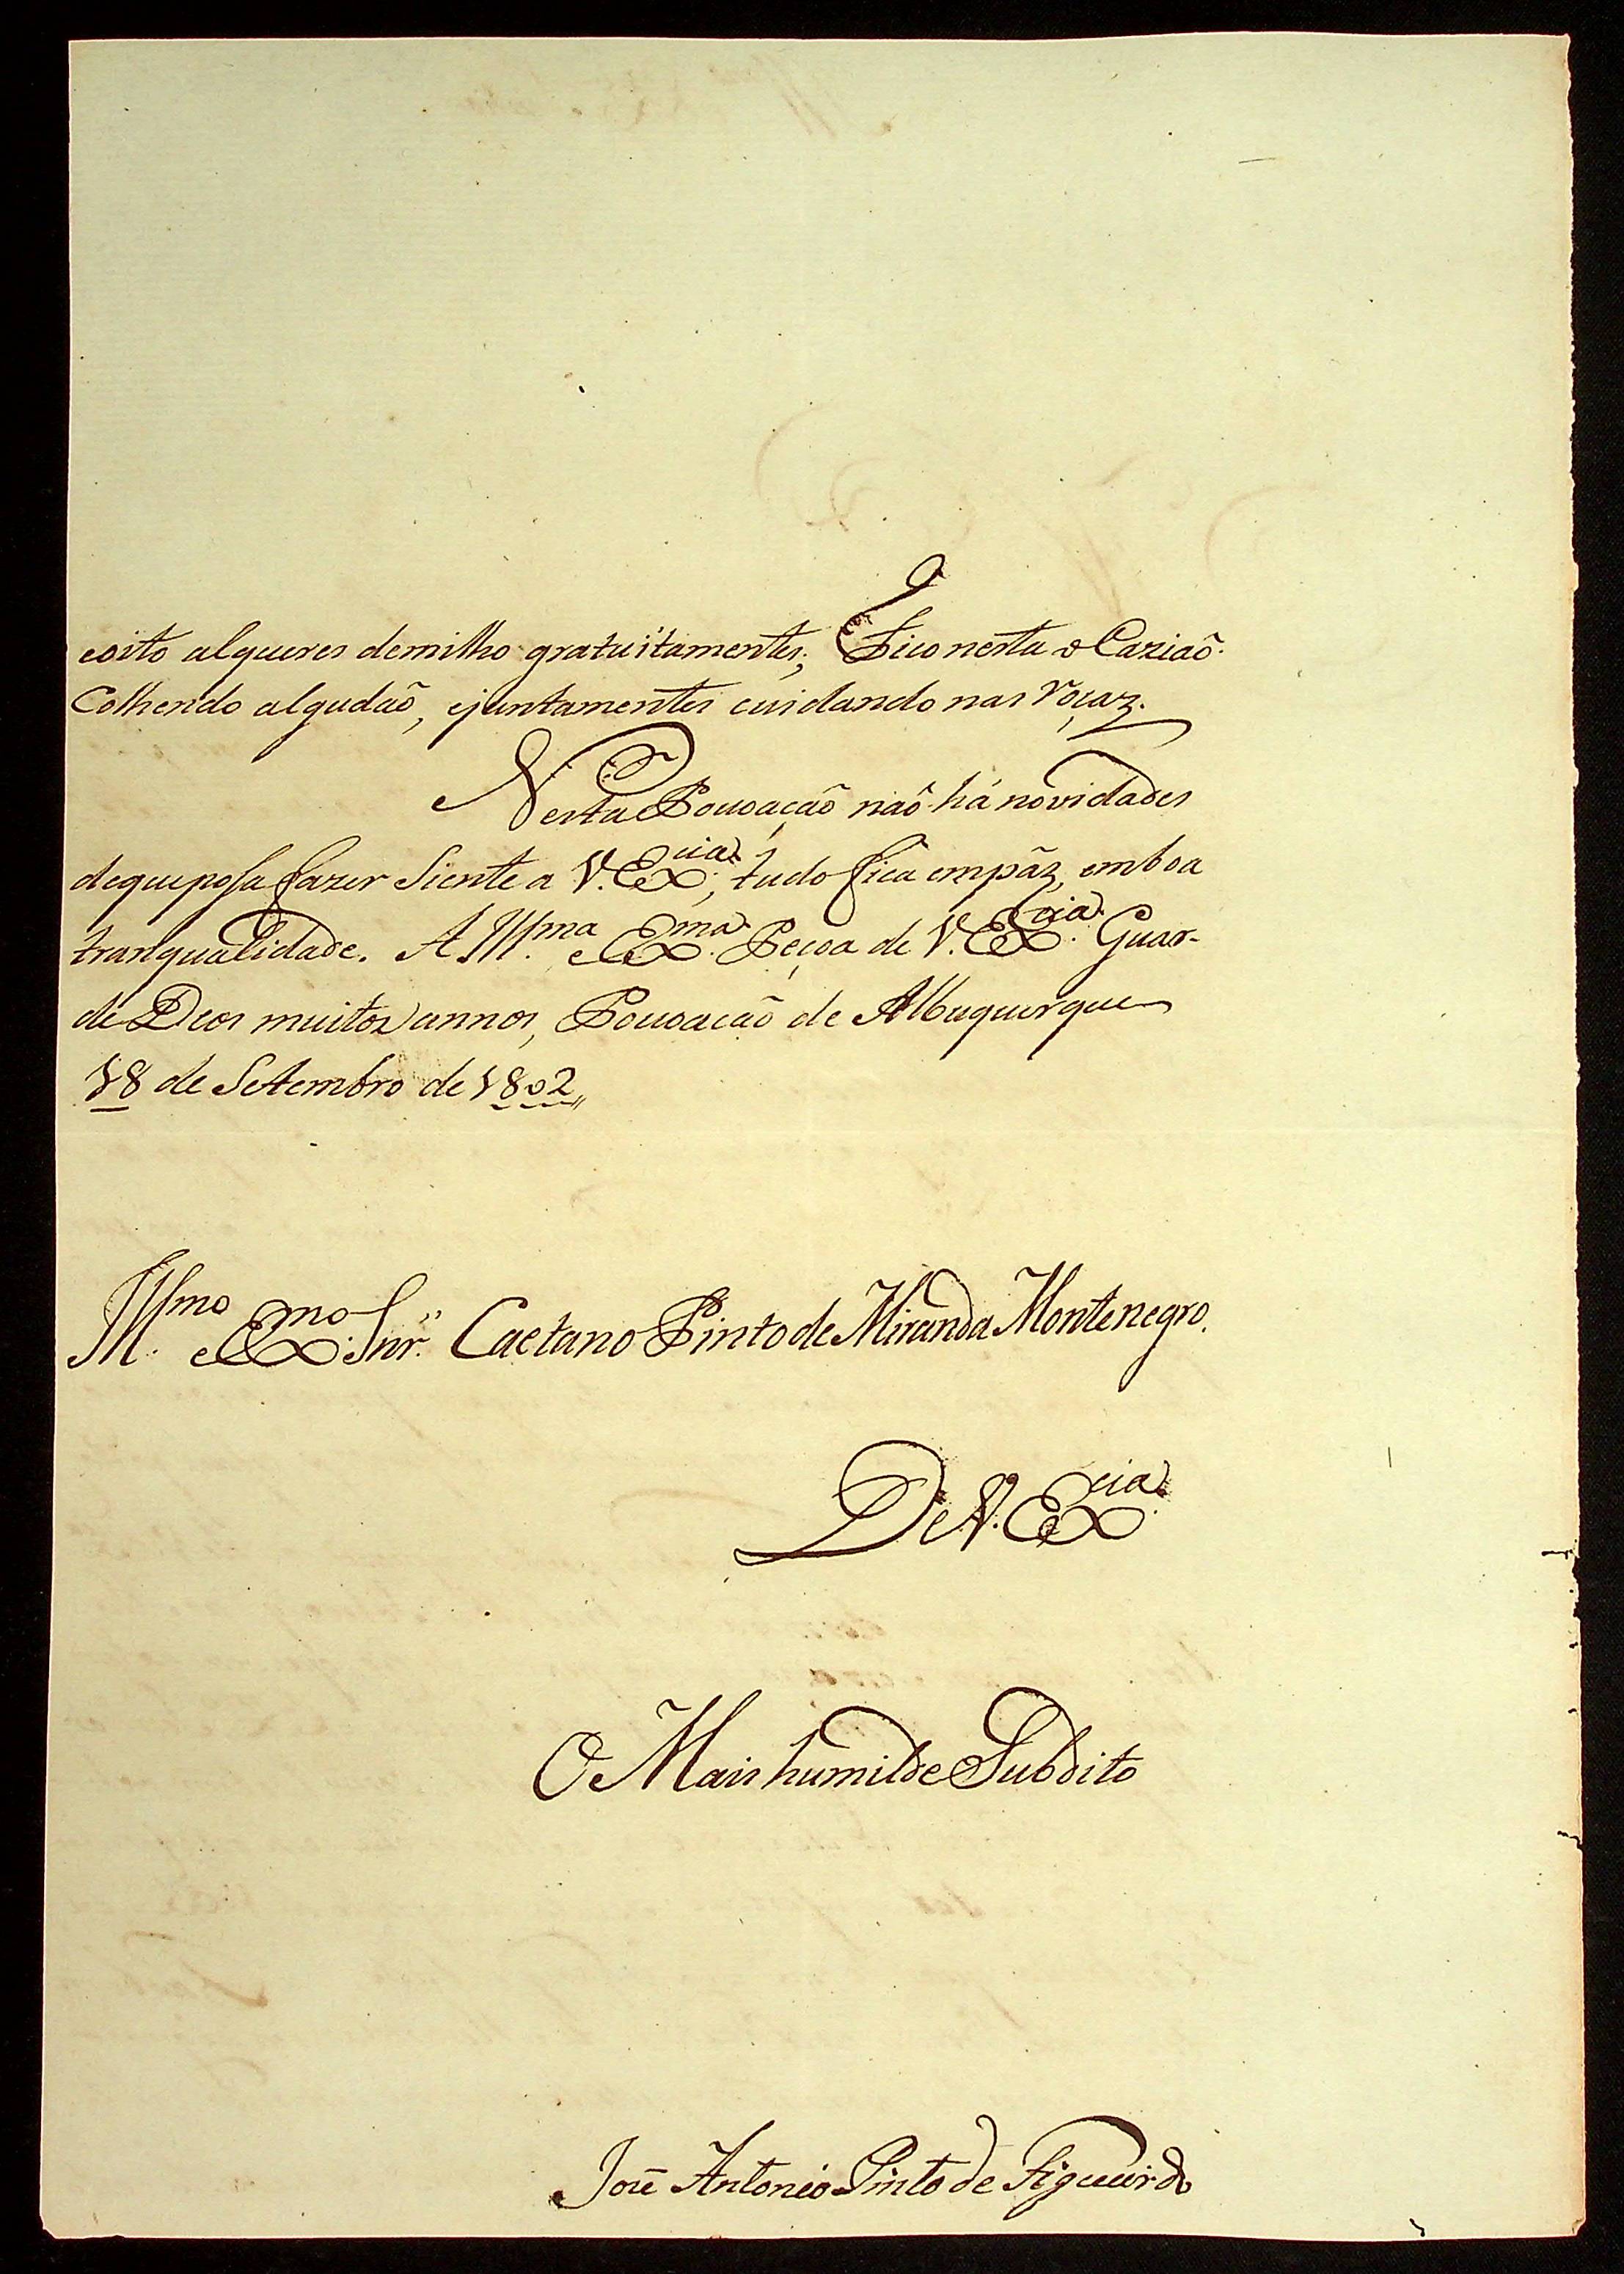 eoito alqueires demilho gratuitamentes; Fico nesta occaziaõ
Colhendo algudaõ, ejuntamentes cuidando nas roçaz.
Nesta Pouoaçaõ naõ há novidades
dequeposa fazer Siente a V. Ex.cia, tudo fica empáz, emboa
tranqualidade. A Ill.ma e Ex.ma Peçoa de V. Ex.cia Guar-
de Deos muitos annos, Pouoacaõ de Albuquerque
18 de Setembro de 1802,,
Ill.mo e Ex.mo Snr. Caetano Pinto de Miranda Montenegro.
De V. Ex.cia
O Mais humilde Subdito
José Antonio Pinto de Figueirdo